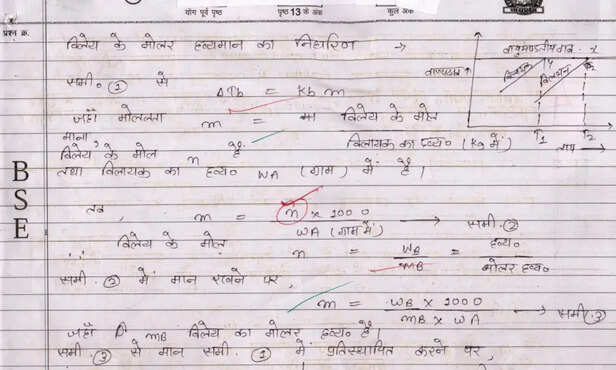 योग पूर्व पृष्ठ
पृष्ठ 13 के अंक
कुल अंक
प्रश्न क्र.
विलेय के मोलर द्रव्यमान का निर्धारण →
समी० ① से
ΔTb = Kb m
जहाँ मोललता m = विलेय के मोल
विलायक का द्रव्य० (Kg में)
माना,
विलेय के मोल n है
तथा विलायक का द्रव्य० WA (ग्राम) में है।
तब, m = n × 1000
WA (ग्राम में)
→ समी. ②
∴ विलेय के मोल n = WB = द्रव्य०
MB मोलर द्रव्य०
समी. ② में मान रखने पर,
m = WB × 1000
MB × WA
→ समी. ③
जहाँ MB विलेय का मोलर द्रव्य० है।
समी. ③ से मान समी. ① में प्रतिस्थापित करने पर,
वायुमण्डलीय दाब
वाष्पदाब
विलायक
विलयन
T1
T2
ताप →
BSE